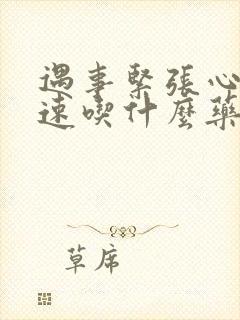 遇事緊張心
速喫什麼藥
草席